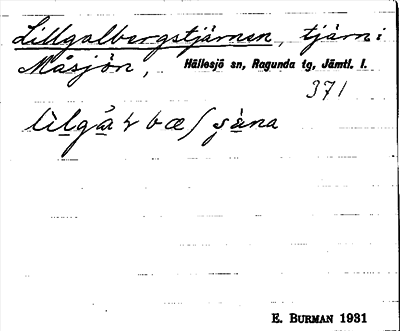 Lillgalbergstjärnen, tjärn i
Måsjön, Hällesjö sn, Ragunda tg, Jämtl. l.
371
E. BURMAN 1931